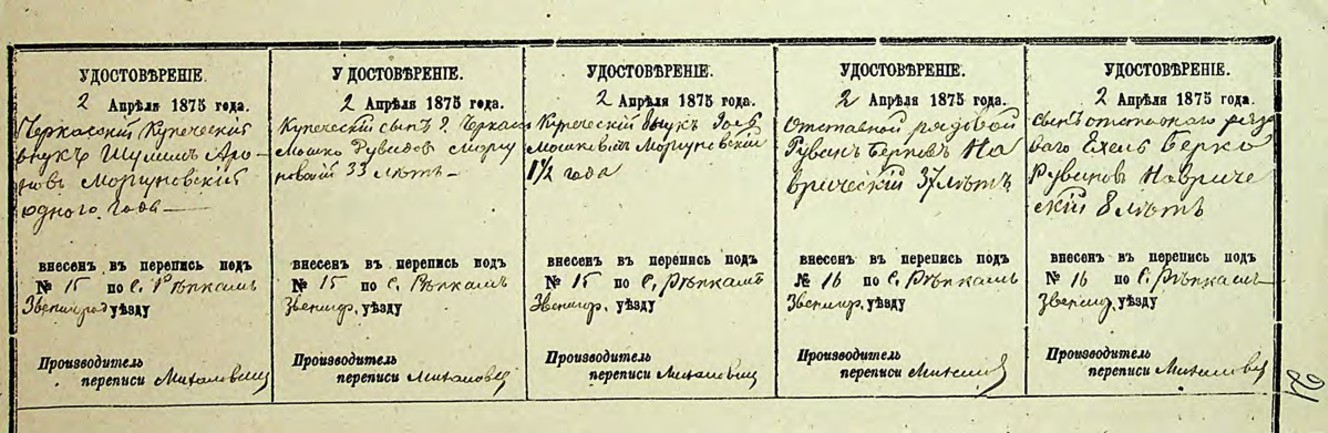 УДОСТОВѢРЕНІЕ.
2 Апрѣля 1875 года.
Черкасскій Купеческій
внукъ Шулимъ Аро-
новъ Моргуновскій
одного года
внесенъ въ перепись подъ
№ 15 по с. Рѣпкамъ
уѣзду
Производитель
переписи
УДОСТОВѢРЕНІЕ.
2 Апрѣля 1875 года.
Купеческій сынъ г.
Мошко Рувидов
33 лѣтъ
внесенъ въ перепись подъ
№ 15 по с. Рѣпкамъ
Звенигр. уѣзду
Производитель
переписи
УДОСТОВѢРЕНІЕ.
2 Апрѣля 1875 года.
Купеческій внукъ
Моргуновскій
1½ года
внесенъ въ перепись подъ
№ 15 по с. Рѣпкамъ
Звенигр. уѣзду
Производитель
переписи
УДОСТОВѢРЕНІЕ.
2 Апрѣля 1875 года.
Отставной рядовой
Рувинъ Берковъ На
врическій 37 лѣтъ
внесенъ въ перепись подъ
№ 16 по с. Рѣпкамъ
Звенигр. уѣзду
Производитель
переписи
УДОСТОВѢРЕНІЕ.
2 Апрѣля 1875 года.
сынъ отставнаго рядо
ваго Ехель Берко
Рувиновъ Навриче
скій 8 лѣтъ
внесенъ въ перепись подъ
№ 16 по с. Рѣпкамъ
Звенигр. уѣзду
Производитель
переписи